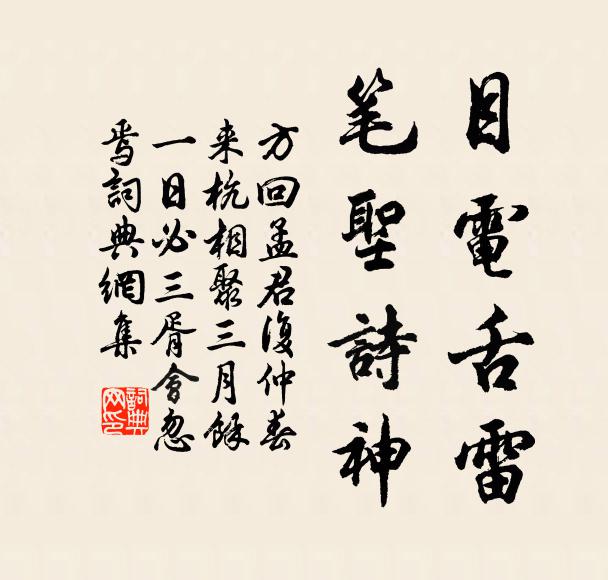 目電舌雷
笔聖詩神
方回孟君復仲春
来杭相聚三月餘
一日必三胥會忽
焉詞典網集
詞典
网印